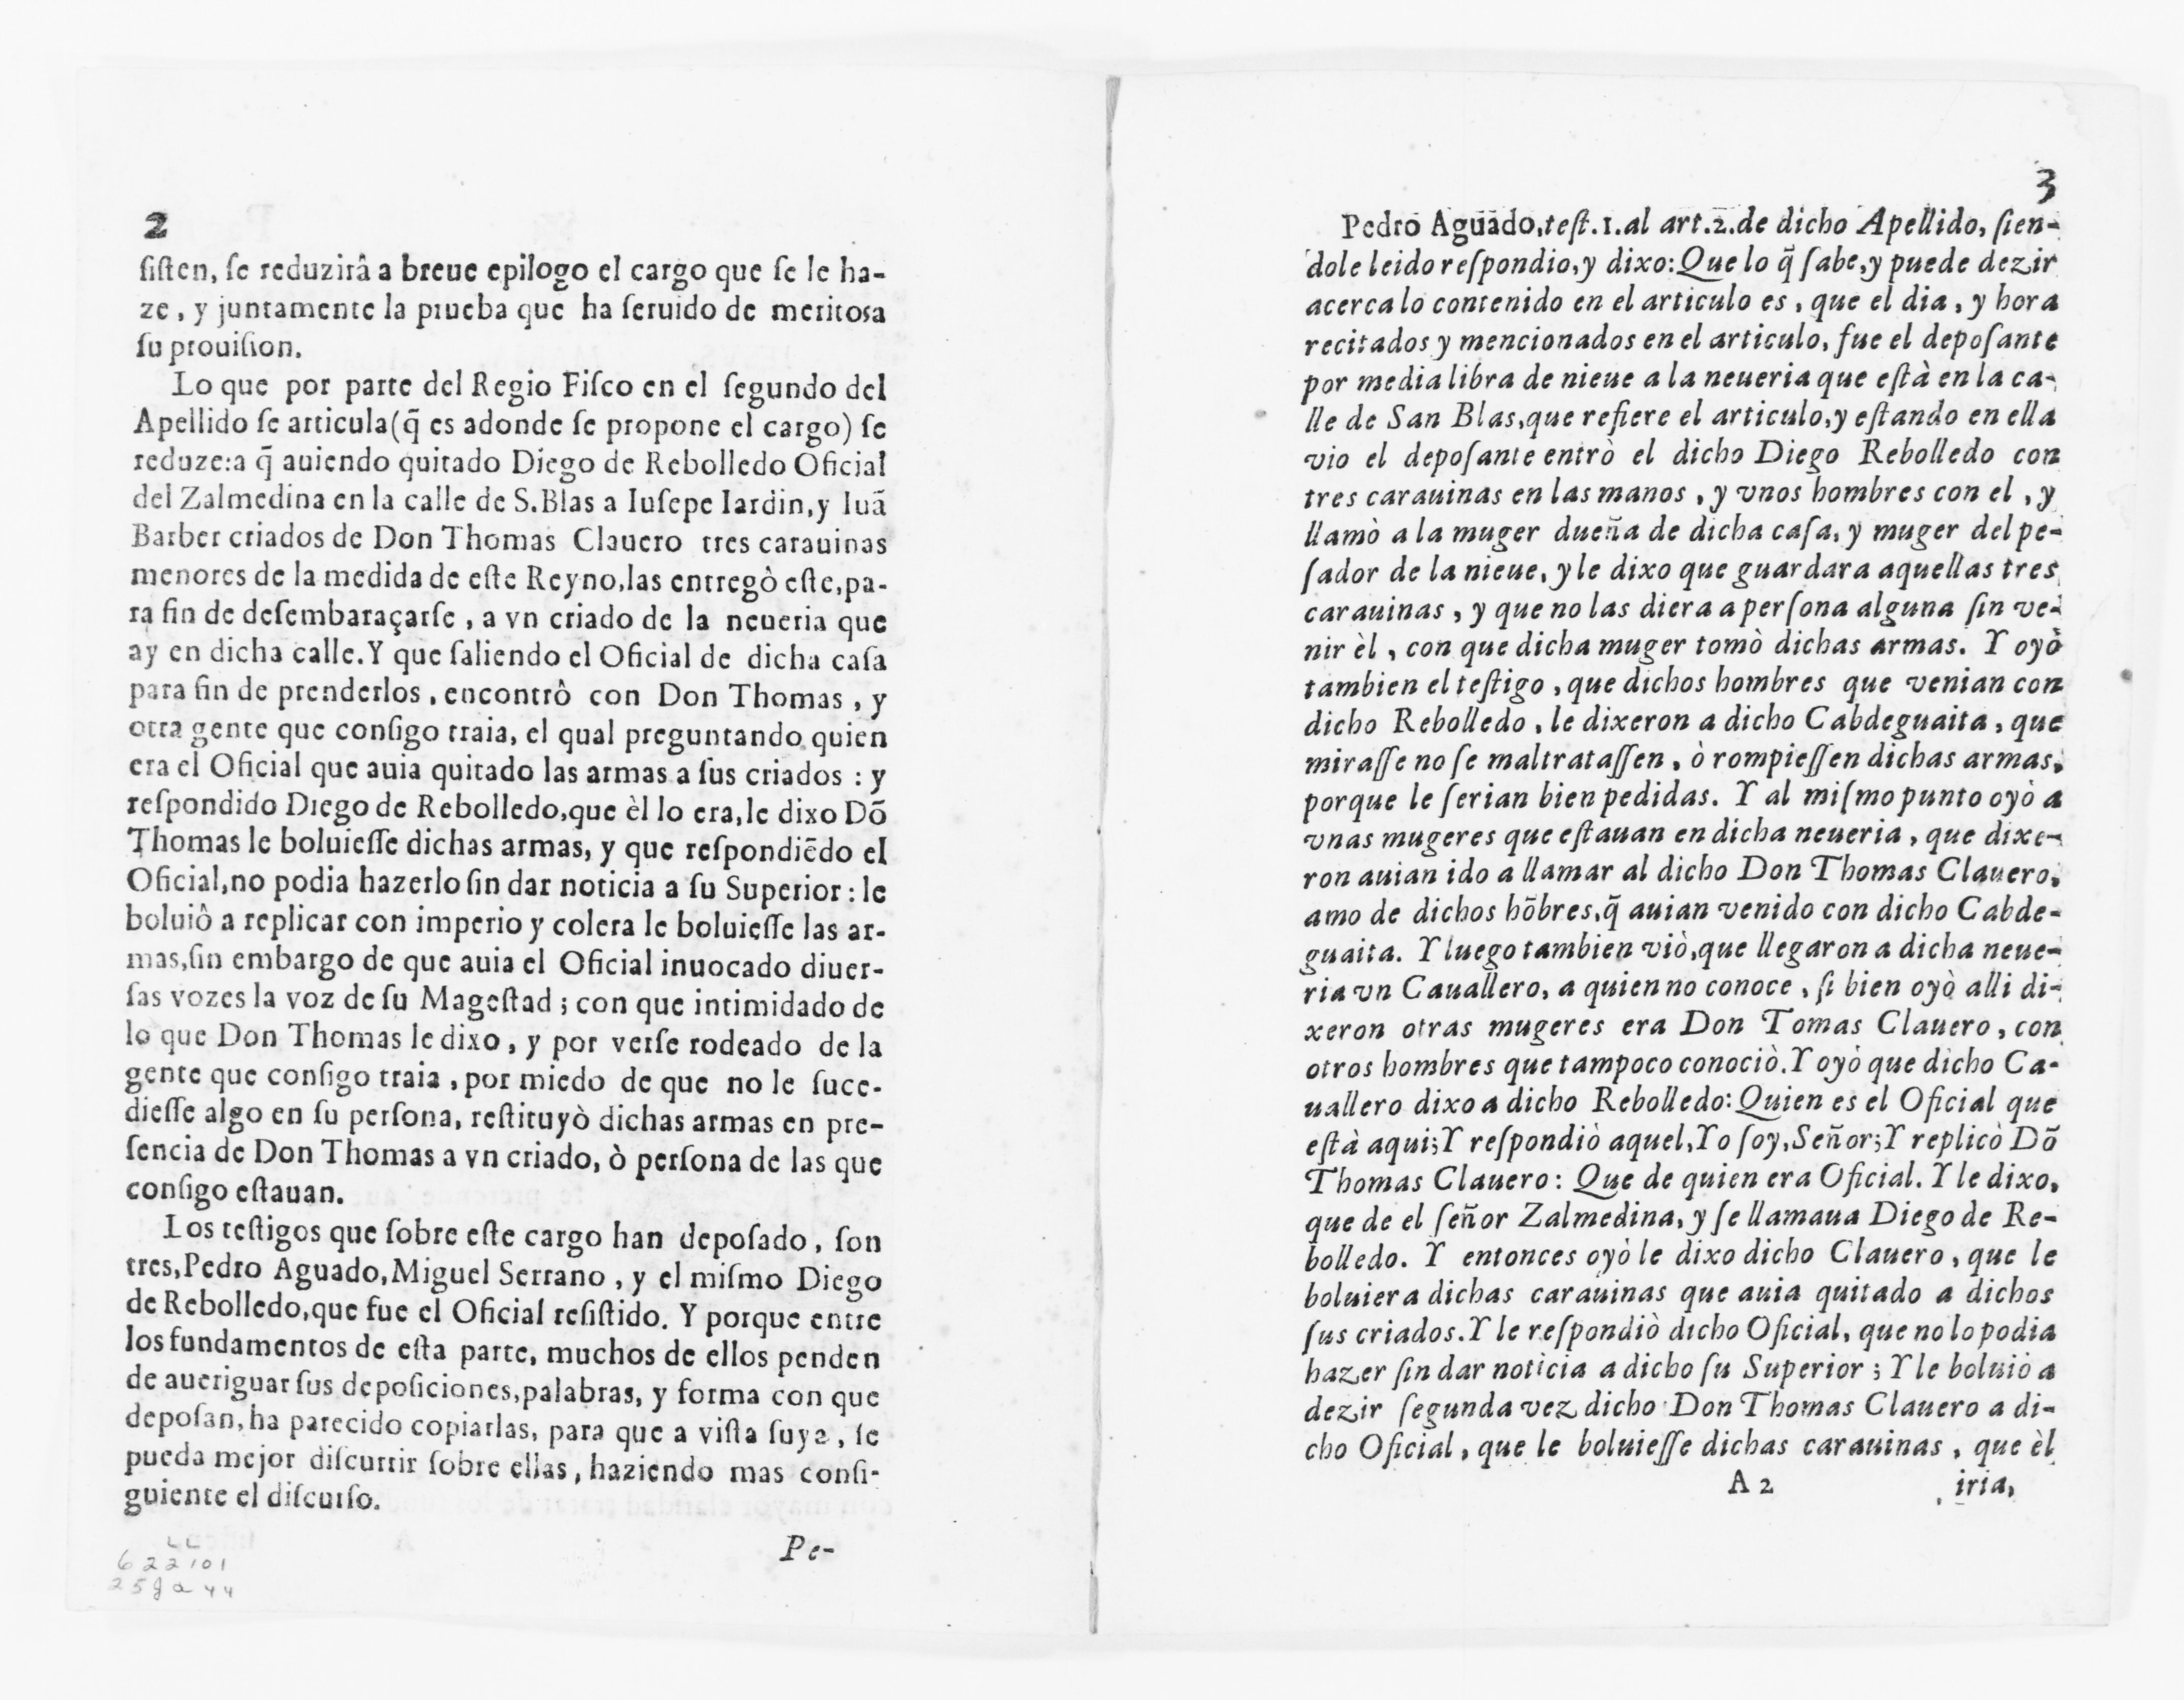 2
ſiſten, ſe reduzirâ a breue epilogo el cargo que ſe le ha-
ze, y juntamente la prueba que ha ſeruido de meritosa
ſu prouiſion.
Lo que por parte del Regio Fiſco en el ſegundo del
Apellido ſe articula(q̃ es adonde ſe propone el cargo) ſe
reduze:a q̃ auiendo quitado Diego de Rebolledo Oficial
del Zalmedina en la calle de S.Blas a Iuſepe Iardin,y Iuã
Barber criados de Don Thomas Clauero tres carauinas
menores de la medida de eſte Reyno,las entregò eſte,pa-
ra fin de deſembaraçarſe, a vn criado de la neueria que
ay en dicha calle.Y que ſaliendo el Oficial de dicha caſa
para fin de prenderlos, encontrô con Don Thomas, y
otra gente que conſigo traia, el qual preguntando quien
era el Oficial que auia quitado las armas a ſus criados: y
reſpondido Diego de Rebolledo,que èl lo era,le dixo Dõ
Thomas le boluieſſe dichas armas, y que reſpondiẽdo el
Oficial,no podia hazerlo ſin dar noticia a ſu Superior: le
boluiô a replicar con imperio y colera le boluieſſe las ar-
mas,ſin embargo de que auia el Oficial inuocado diuer-
ſas vozes la voz de ſu Mageſtad; con que intimidado de
lo que Don Thomas le dixo, y por verſe rodeado de la
gente que conſigo traia, por miedo de que no le ſuce-
dieſſe algo en ſu perſona, reſtituyò dichas armas en pre-
ſencia de Don Thomas a vn criado, ò perſona de las que
conſigo eſtauan.
Los teſtigos que ſobre eſte cargo han depoſado, ſon
tres,Pedro Aguado,Miguel Serrano, y el miſmo Diego
de Rebolledo,que fue el Oficial reſiſtido. Y porque entre
los fundamentos de eſta parte, muchos de ellos penden
de aueriguar ſus depoſiciones,palabras, y forma con que
depoſan,ha parecido copiarlas, para que a viſta ſuya, ſe
pueda mejor diſcurrir ſobre ellas, haziendo mas conſi-
guiente el diſcurſo.
Pe-
LL
622101
25 ja 44
3
Pedro Aguado,teſt.1.al art.2.de dicho Apellido, ſien-
dole leido reſpondio,y dixo:Que lo q̃ ſabe,y puede dezir
acerca lo contenido en el articulo es, que el dia, y hora
recitados y mencionados en el articulo, fue el depoſante
por media libra de nieue a la neueria que eſtà en la ca-
lle de San Blas,que refiere el articulo,y eſtando en ella
vio el depoſante entrò el dicho Diego Rebolledo con
tres carauinas en las manos, y vnos hombres con el, y
llamò a la muger dueña de dicha caſa, y muger del pe-
ſador de la nieue, y le dixo que guardara aquellas tres
carauinas, y que no las diera a perſona alguna ſin ve-
nir èl, con que dicha muger tomò dichas armas. Y oyò
tambien el teſtigo, que dichos hombres que venian con
dicho Rebolledo, le dixeron a dicho Cabdeguaita, que
miraſſe no ſe maltrataſſen, ò rompieſſen dichas armas,
porque le ſerian bien pedidas. Y al miſmo punto oyò a
vnas mugeres que eſtauan en dicha neueria, que dixe-
ron auian ido a llamar al dicho Don Thomas Clauero,
amo de dichos hõbres,q̃ auian venido con dicho Cabde-
guaita. Y luego tambien viò,que llegaron a dicha neue-
ria vn Cauallero, a quien no conoce, ſi bien oyò alli di-
xeron otras mugeres era Don Tomas Clauero, con
otros hombres que tampoco conociò.Y oyò que dicho Ca-
uallero dixo a dicho Rebolledo:Quien es el Oficial que
eſtà aqui;Y reſpondiò aquel,Yo ſoy,Señor;Y replicò Dõ
Thomas Clauero: Que de quien era Oficial. Y le dixo,
que de el ſeñor Zalmedina, y ſe llamaua Diego de Re-
bolledo. Y entonces oyò le dixo dicho Clauero, que le
boluiera dichas carauinas que auia quitado a dichos
ſus criados.Y le reſpondiò dicho Oficial, que no lo podia
hazer ſin dar noticia a dicho ſu Superior; Y le boluiò a
dezir ſegunda vez dicho Don Thomas Clauero a di-
cho Oficial, que le boluieſſe dichas carauinas, que èl
A 2
iria,